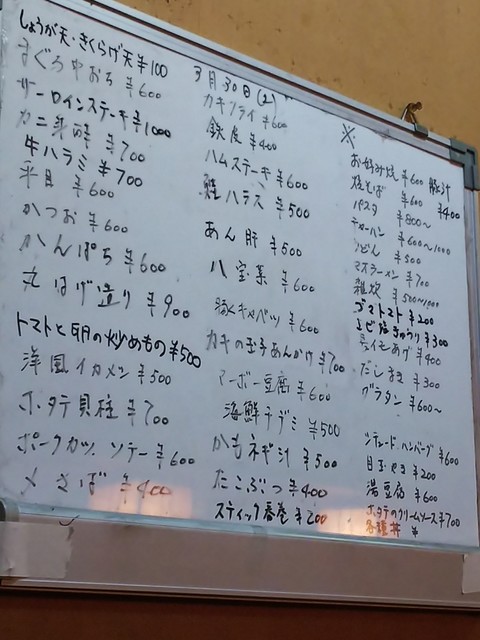 しょうが天・きくらげ天 ¥100
まぐろ中おち ¥600
サーロインステーキ ¥1000
カニ ¥700
牛ハラミ ¥700
平目 ¥600
かつお ¥600
かんぱち ¥600
丸はげ造り ¥900
トマトと卵の炒めもの ¥500
洋風イカメシ ¥500
ホタテ貝柱 ¥700
ポークカツ ソテー ¥600
〆さば ¥400
3月30日(土)
カキフライ ¥600
鉄皮 ¥400
ハムステーキ ¥600
鮭ハラス ¥500
あん肝 ¥500
八宝菜 ¥600
豚くキャベツ ¥600
カキの玉子あんかけ ¥700
マーボー豆腐 ¥600
海鮮チヂミ ¥500
かもネギ汁 ¥500
たこぶつ ¥400
スティック春巻 ¥200
※
お好み焼 ¥600 豚汁 ¥400
焼そば ¥600
パスタ ¥800〜
チャーハン ¥600〜1000
うどん ¥500
マスラーメン ¥700
雑炊 ¥500〜
ゴマトマト ¥200
えび塩きゅうり ¥300
長イモあげ ¥400
だしまき ¥300
グラタン ¥600〜
シチュードハンバーグ ¥600
目玉やき ¥200
湯豆腐 ¥600
ホタテのクリームソース ¥700
各種丼 ¥